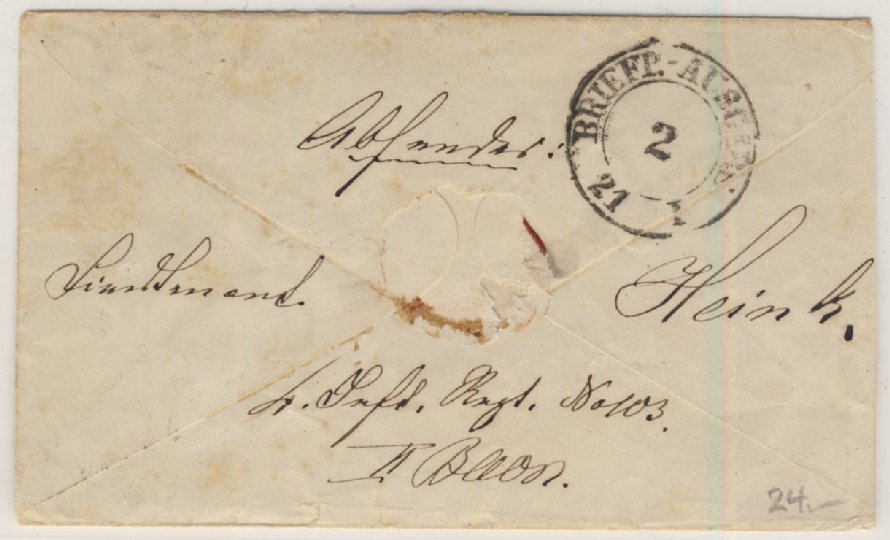 BRIEFP.-AUSGAB.
2
21
Absender:
Lieutenant Heink,
4. Inft. Regt. No 103.
II Baon.
24.-